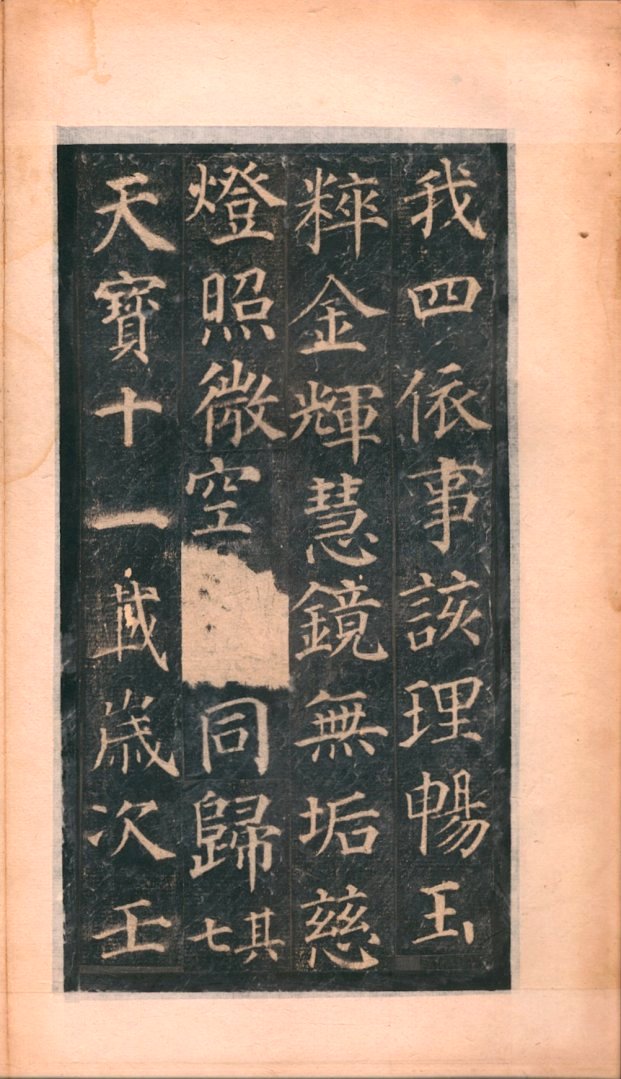 我四依事該理暢玉
粹金輝慧鏡無垢慈
燈照微空同歸其七
天寶十一載歲次壬